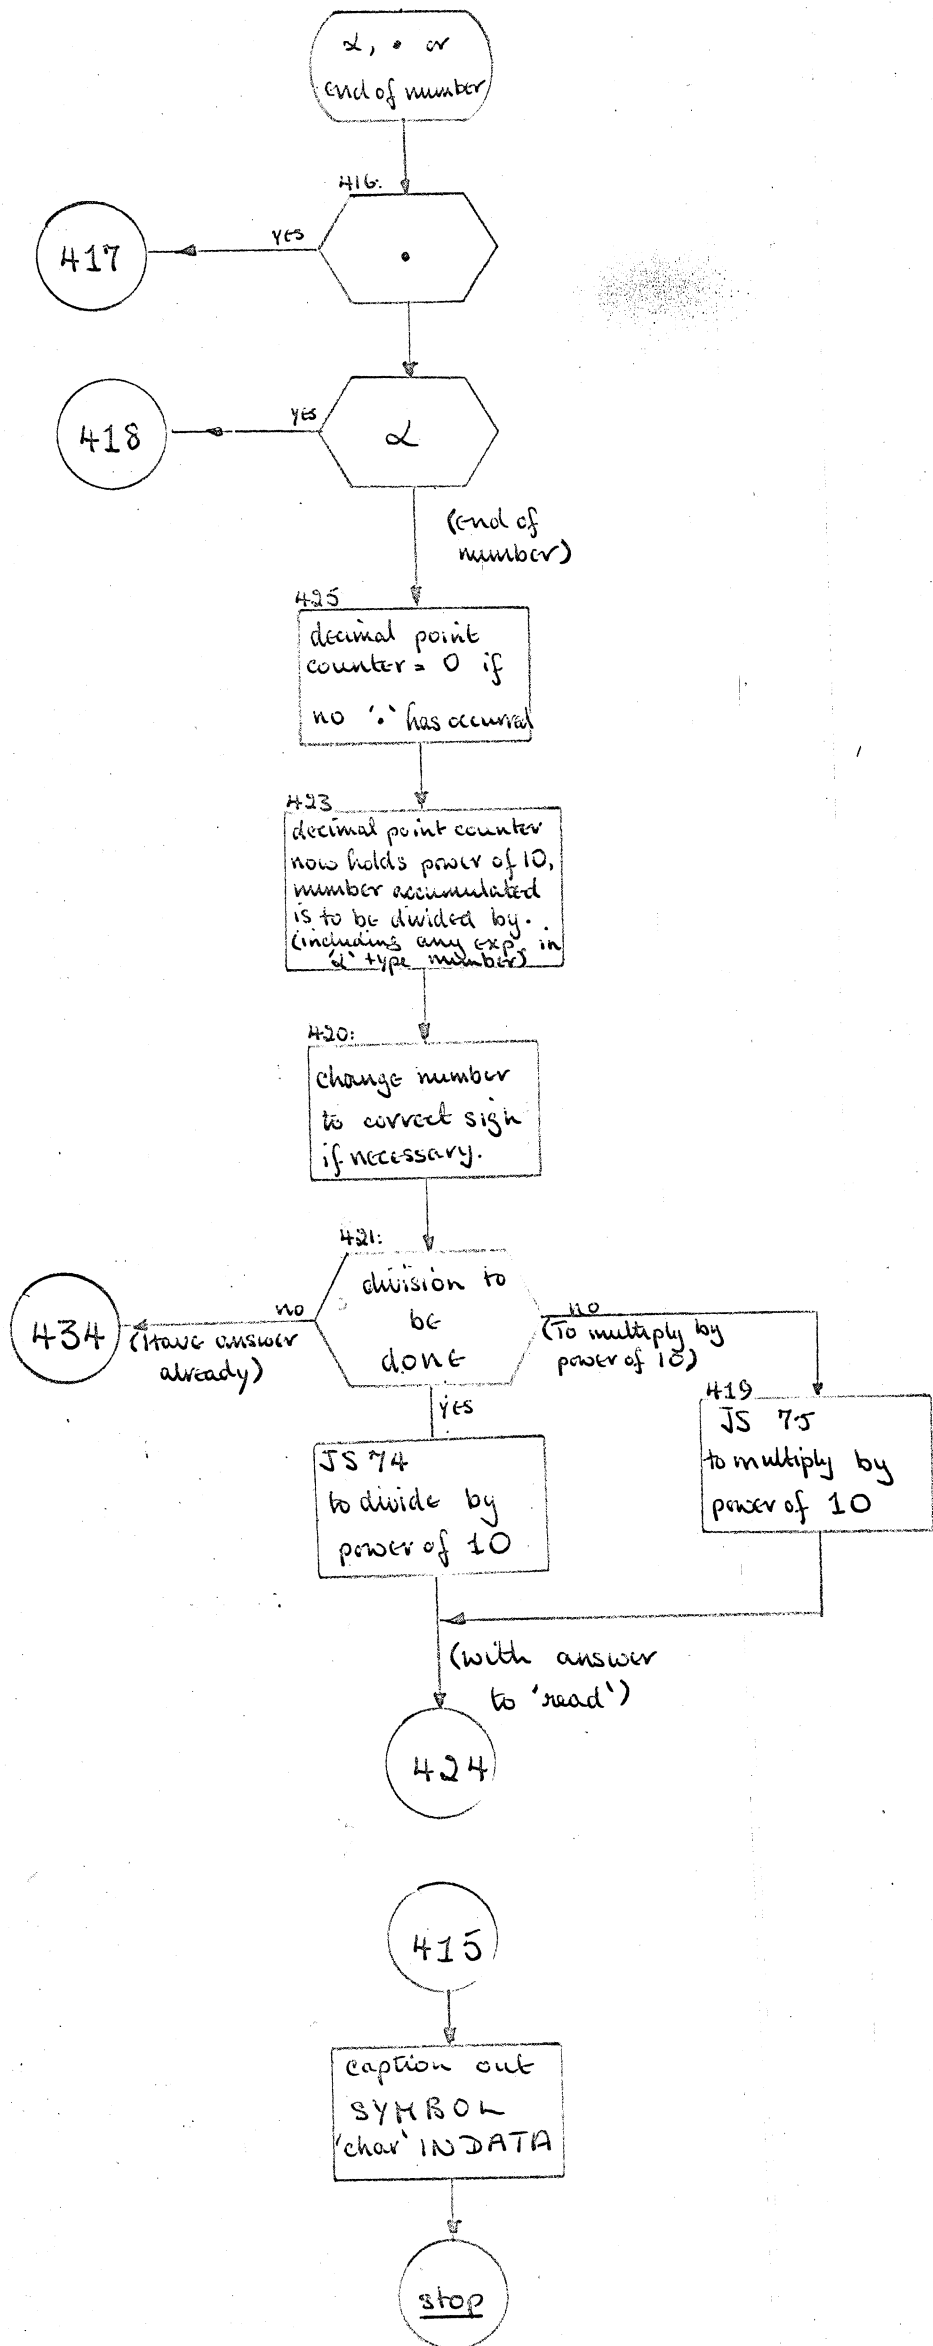 α, • or
end of number
416:
YES
417
•
YES
418
α
(end of
number)
425
decimal point
counter = 0 if
no '.' has occurred
423
decimal point counter
now holds power of 10,
number accumulated
is to be divided by.
(including any exp. in
'α' type number)
420:
change number
to correct sign
if necessary.
421:
division to
be
done
no
434
(Have answer
already)
no
(To multiply by
power of 10)
YES
419
JS 75
to multiply by
power of 10
JS 74
to divide by
power of 10
(with answer
to 'read')
424
415
caption out
SYMBOL
'char' IN DATA
stop